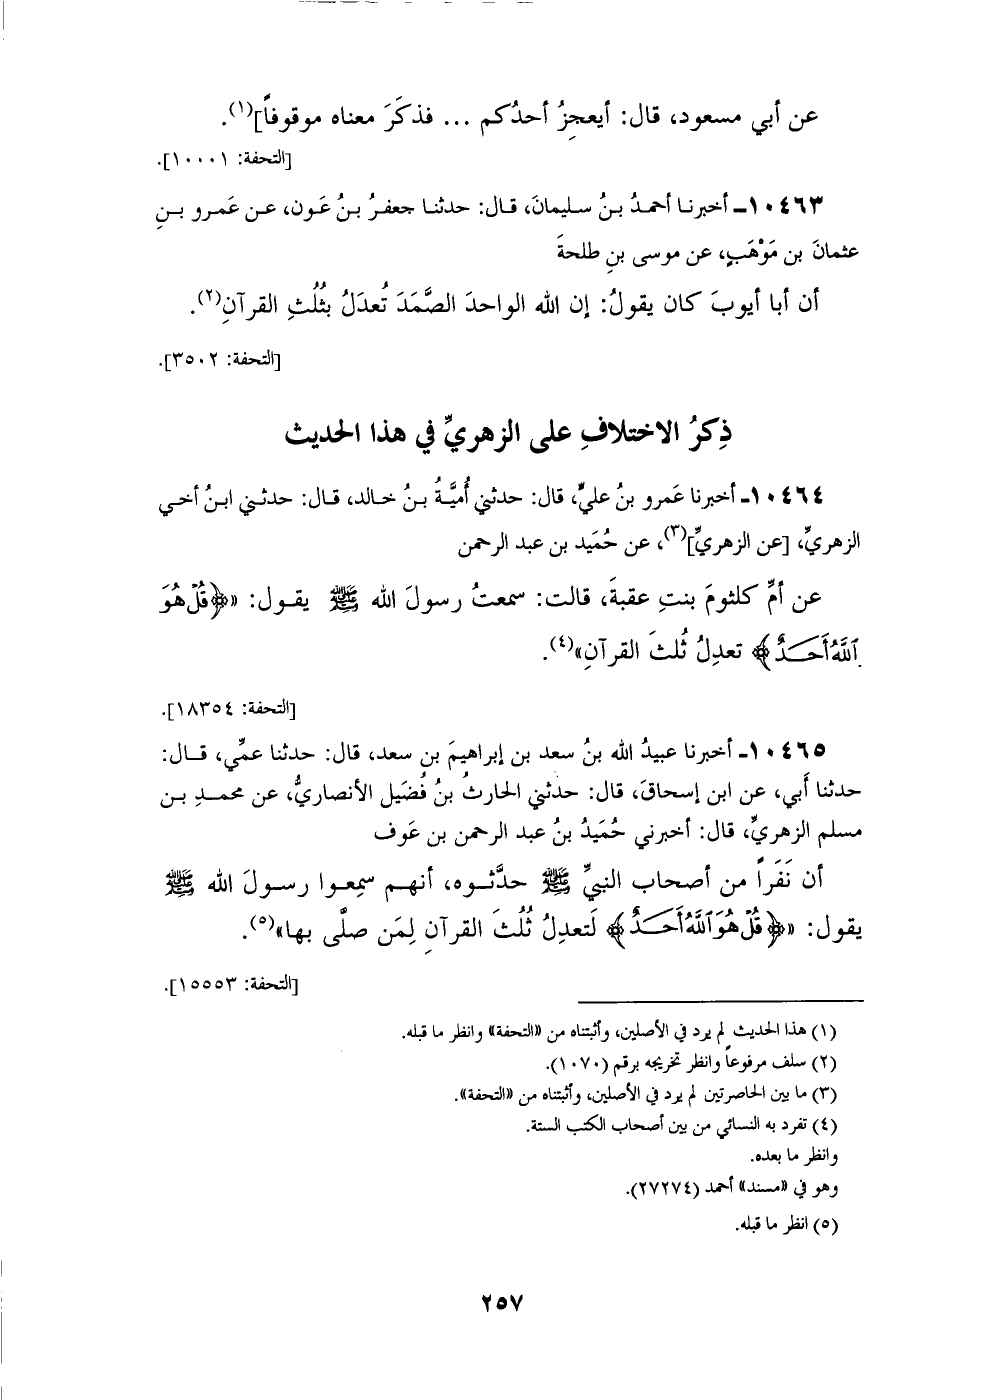 عن أبي مسعود، قال: أيعجِزُ أحدُكم ... فذكَرَ معناه موقوفاً](١).
[التحفة: ١٠٠٠١].
١٠٤٦٣ـ أخبرنا أحمدُ بنُ سليمانَ، قال: حدثنا جعفرُ بنُ عَون، عن عَمرو بنِ
عثمانَ بن مَوْهَبٍ، عن موسى بنِ طلحةَ
أن أبا أيوبَ كان يقولُ: إن الله الواحدَ الصَّمَدَ تُعدَلُ بثُلُثِ القرآنِ(٢).
[التحفة: ٣٥٠٢].
ذِكرُ الاختلافِ على الزهريِّ في هذا الحديث
١٠٤٦٤ـ أخبرنا عَمرو بنُ عليٍّ، قال: حدثني أُميَّةُ بنُ خالد، قال: حدثني ابنُ أخي
الزهريِّ، [عن الزهريِّ](٣)، عن حُمَيد بن عبد الرحمن
عن أمِّ كلثومَ بنتِ عقبةَ، قالت: سمعتُ رسولَ الله ﷺ يقول: «﴿قُلْ هُوَ
ٱللَّهُ أَحَدٌ﴾ تعدِلُ ثُلثَ القرآنِ»(٤).
[التحفة: ١٨٣٥٤].
١٠٤٦٥ـ أخبرنا عبيدُ الله بنُ سعد بن إبراهيمَ بن سعد، قال: حدثنا عمِّي، قال:
حدثنا أَبي، عن ابن إسحاقَ، قال: حدثني الحارثُ بنُ فُضَيل الأنصاريُّ، عن محمدِ بن
مسلم الزهريِّ، قال: أخبرني حُمَيدُ بنُ عبد الرحمن بن عَوف
أن نَفَراً من أصحاب النبيِّ ﷺ حدَّثوه، أنهم سمِعوا رسولَ الله ﷺ
يقول: «﴿قُلْ هُوَ ٱللَّهُ أَحَدٌ﴾ لَتعدِلُ ثُلُثَ القرآنِ لِمَن صلَّى بها»(٥).
[التحفة: ١٥٥٥٣].
(١) هذا الحديث لم يرد في الأصلين، وأثبتناه من «التحفة» وانظر ما قبله.
(٢) سلف مرفوعاً وانظر تخريجه برقم (١٠٧٠).
(٣) ما بين الحاصرتين لم يرد في الأصلين، وأثبتناه من «التحفة».
(٤) تفرد به النسائي من بين أصحاب الكتب الستة.
وانظر ما بعده.
وهو في «مسند» أحمد (٢٧٢٧٤).
(٥) انظر ما قبله.
٢٥٧